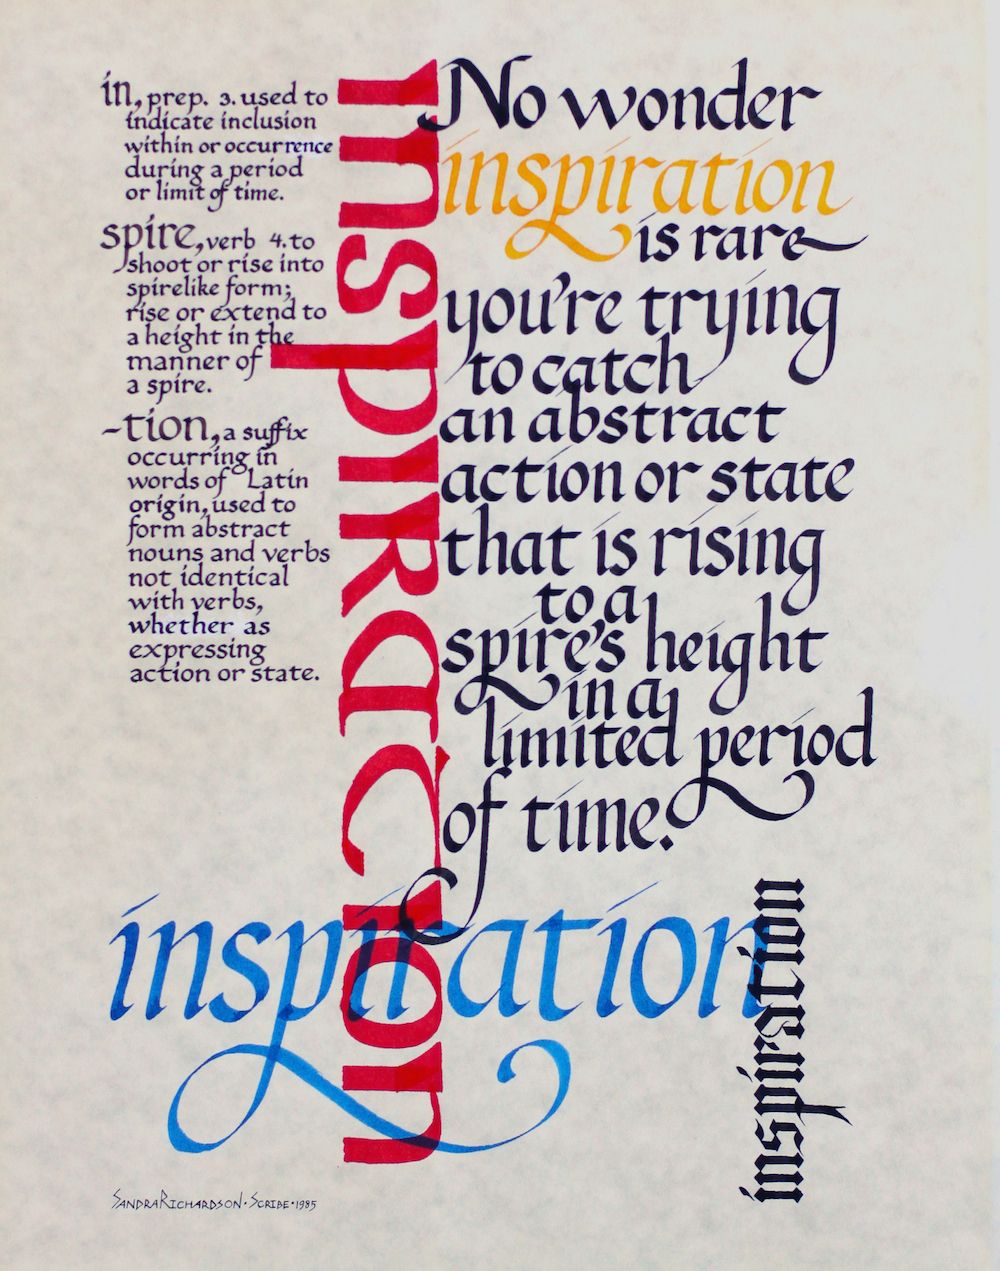 in, prep. 3. used to
indicate inclusion
within or occurrence
during a period
or limit of time.
spire, verb 4. to
shoot or rise into
spirelike form;
rise or extend to
a height in the
manner of
a spire.
-tion, a suffix
occurring in
words of Latin
origin, used to
form abstract
nouns and verbs
not identical
with verbs,
whether as
expressing
action or state.
inspiration
No wonder
inspiration
is rare
you're trying
to catch
an abstract
action or state
that is rising
to a
spire's height
in a
limited period
of time.
inspiration
inspiration
SANDRA RICHARDSON · SCRIBE · 1985